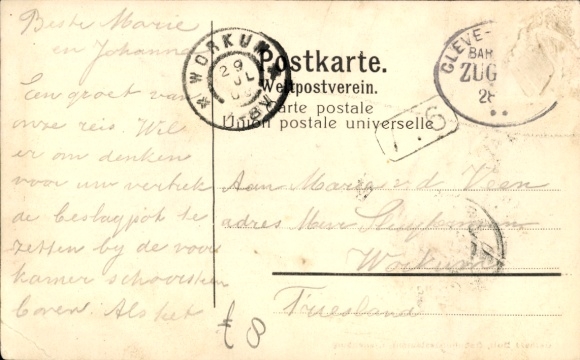 Beste Marie
en Johanna
Een groet van
onze reis. Wil
er om denken
voor uw vertrek
de beslagpot te
zetten by de voor
kamer schoorsteen
boven. Als het
WORKUM
29
Postkarte.
Weltpostverein.
Carte postale
Union postale universelle
CLEVE
BAH
ZUG
Aan Marie v. d. Veen
adres Mevr
Workum
Friesland
8